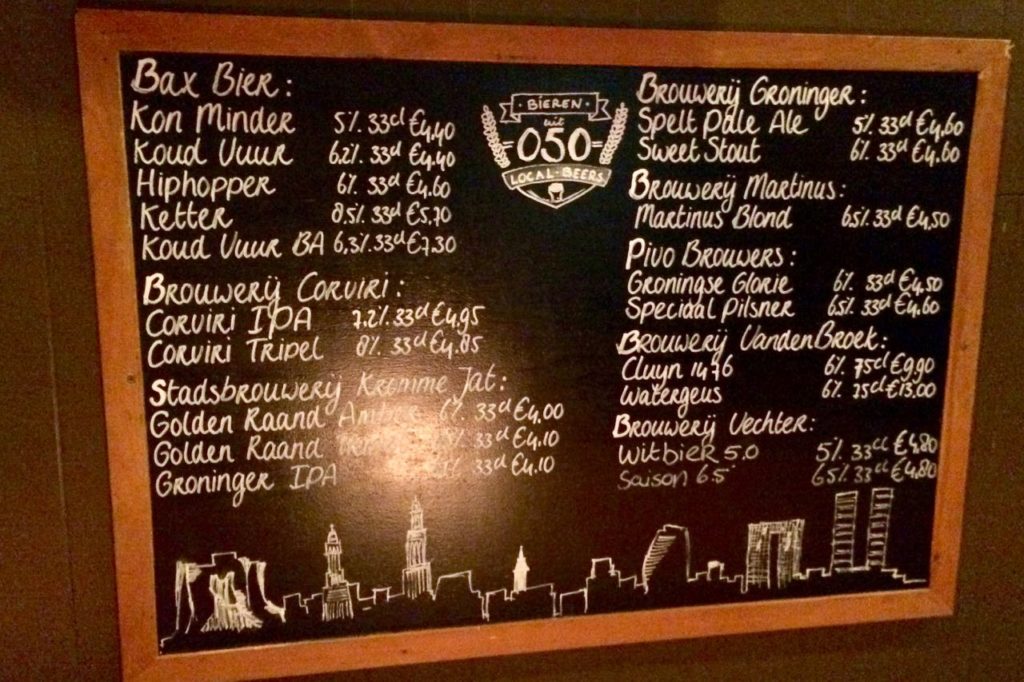 Bax Bier:
Kon Minder 5% 33cl €4,40
Koud Vuur 6.2% 33cl €4,40
Hiphopper 6% 33cl €4.60
Ketter 8.5% 33cl €5,70
Koud Vuur BA 6,3% 33cl €7.30
Brouwerij Corviri:
Corviri IPA 7.2% 33cl €4.95
Corviri Tripel 8% 33cl €4.85
Stadsbrouwerij Kromme Jat:
Golden Raand Amber 6% 33cl €4.00
Golden Raand 33cl €4.10
Groninger IPA 33cl €4.10
· BIEREN ·
uit
050
LOCAL · BEERS
Brouwerij Groninger:
Spelt Pale Ale 5% 33cl €4.60
Sweet Stout 6% 33cl €4.60
Brouwerij Martinus:
Martinus Blond 6,5% 33cl €4,50
Pivo Brouwers:
Groningse Glorie 6% 33cl €4.50
Speciaal Pilsner 6.5% 33cl €4.60
Brouwerij VandenBroek:
Cluyn 1476 6% 75cl €9,90
Watergeus 6% 75cl €13.00
Brouwerij Vechter:
Witbier 5.0 5% 33cl €4.80
Saison 6.5 6.5% 33cl €4,80